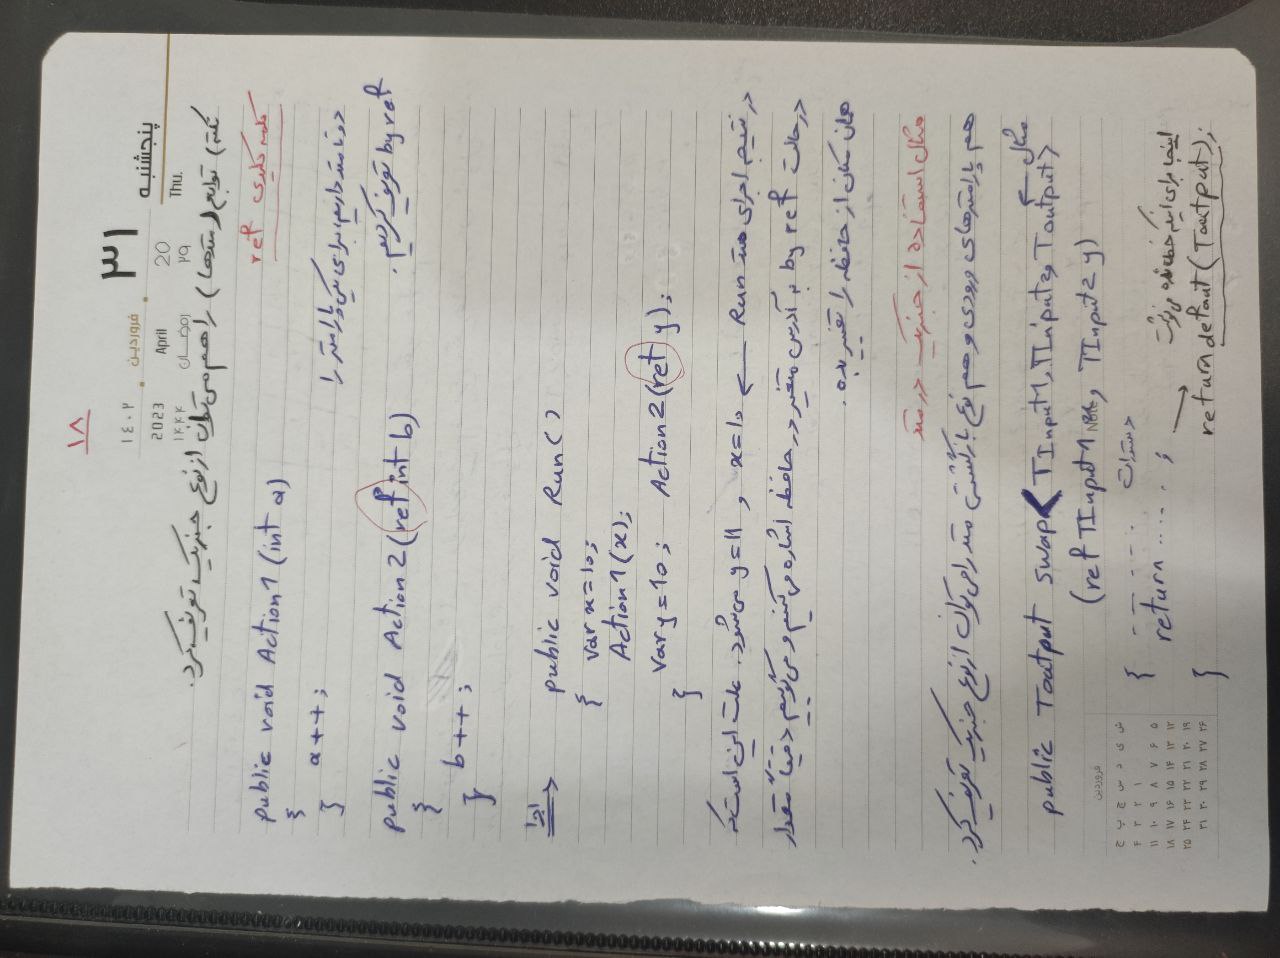 ۱۸
پنجشنبه ۳۱ فروردین ۱٤۰۲
Thu. 20 April 2023
۲۹ رمضان ۱۴۴۴
نکته) توابع (متدها) را هم می‌توان از نوع جنریک تعریف کرد.
کلمه کلیدی ref
public void Action1 (int a)
{
a++;
}
دو تا متد داریم، برای یکی پارامتر را
by ref تعریف کردیم.
public void Action2 (ref int b)
{
b++;
}
اجرا
public void Run()
{ var x=10;
Action1(x);
var y=10; Action2(ref y);
}
در نتیجه اجرای متد Run ← x=10 و y=11 می‌شود. علت این است که
در حالت by ref به آدرس متغیر در حافظه اشاره می‌کنیم و می‌گوییم دقیقاً مقدار
همان مکان از حافظه را تغییر بده.
مثال استفاده از جنریک در متد
هم پارامترهای ورودی و هم نوع بازگشتی متد را می‌توان از نوع جنریک تعریف کرد.
مثال ←
public Toutput swap< TInput1, TInput2, Toutput>
(ref TInput1 x, TInput2 y)
Note
{ ------- دستورات
return ..... ;
اینجا برای اینکه خطا نده می‌نوشت
→ return defaut(Toutput);
}
فروردین
ش ی د س چ پ ج
۱ ۲ ۳ ۴
۵ ۶ ۷ ۸ ۹ ۱۰ ۱۱
۱۲ ۱۳ ۱۴ ۱۵ ۱۶ ۱۷ ۱۸
۱۹ ۲۰ ۲۱ ۲۲ ۲۳ ۲۴ ۲۵
۲۶ ۲۷ ۲۸ ۲۹ ۳۰ ۳۱